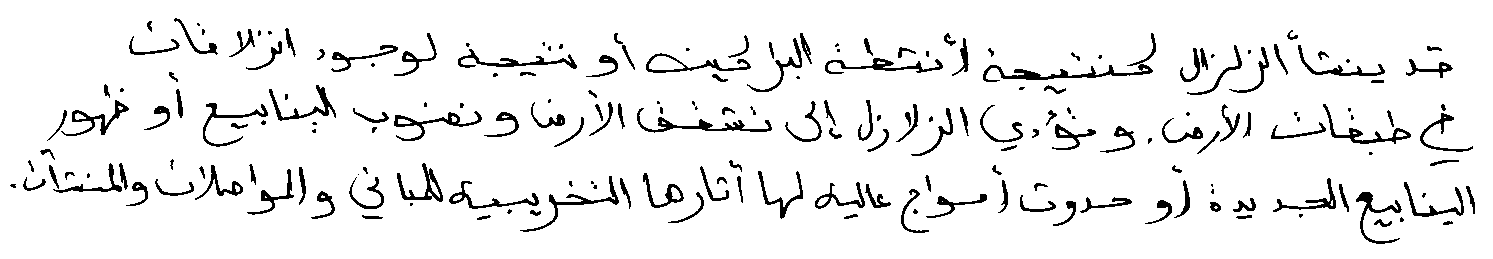 قد ينشأ الزلزال كنتيجة لأنشطة البراكين أو نتيجة لوجود انزلاقات
في طبقات الأرض. وتؤدي الزلازل إلى تشقق الأرض ونضوب الينابيع أو ظهور
الينابيع الجديدة أو حدوث أمواج عالية لها أثارها التخريبية للمباني والمواصلات والمنشآت.